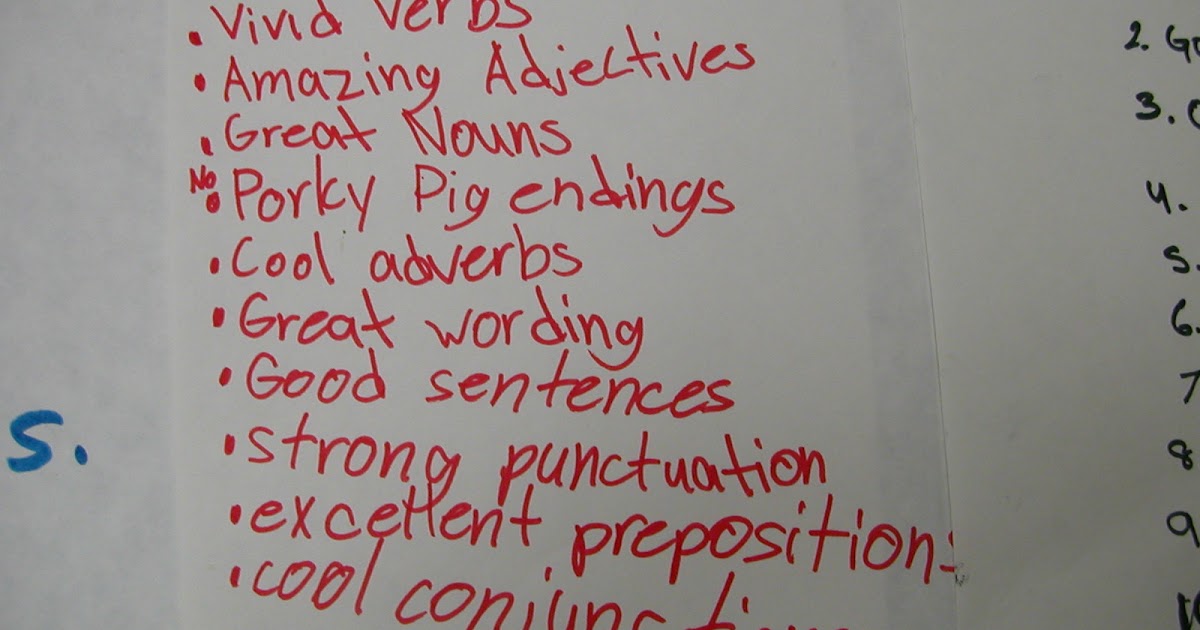 • Vivid verbs
• Amazing Adjectives
• Great Nouns
No
• Porky Pig endings
• Cool adverbs
• Great wording
• Good sentences
• strong punctuation
• excellent preposition
• cool
5.
2.
3.
4.
5.
6.
7
8
9